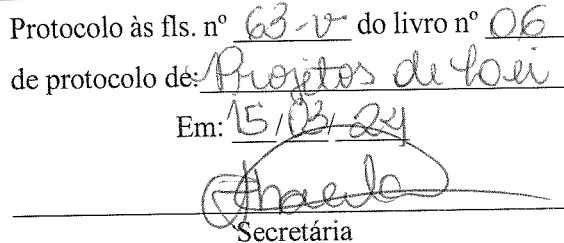 Protocolo às fls. nº 63-v do livro nº 06
de protocolo de: Projetos de Lei
Em: 15/03/24
Secretária